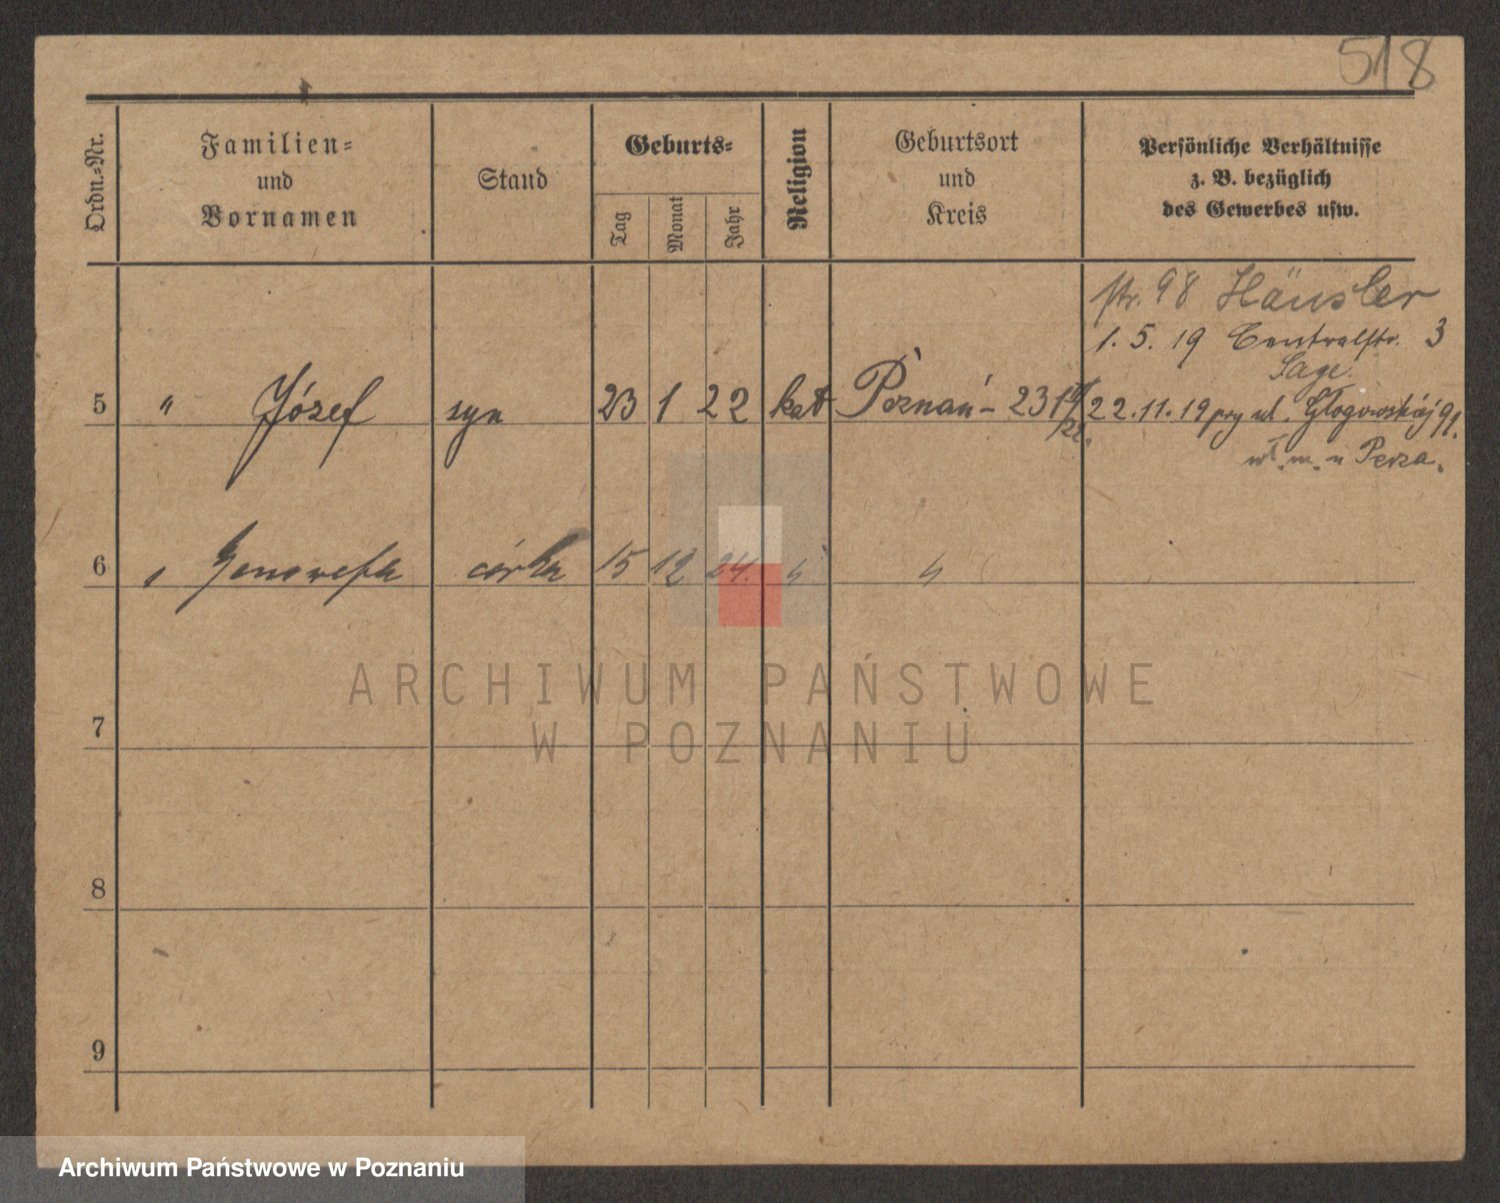 518
Ordn.-Nr.
Familien-
und
Vornamen
Stand
Geburts-
Tag
Monat
Jahr
Religion
Geburtsort
und
Kreis
Persönliche Verhältnisse
z. B. bezüglich
des Gewerbes usw.
str. 98 Häusler
1. 5. 19 Centralstr. 3
Sage
5 " Józef syn 23 1 22 kat Poznań - 23 22. 11. 19 przy ul. Głogowskiej 91.
m. u Perza.
6 " Genowefa córka 15 12 24. " "
7
8
9
ARCHIWUM PAŃSTWOWE
W POZNANIU
Archiwum Państwowe w Poznaniu